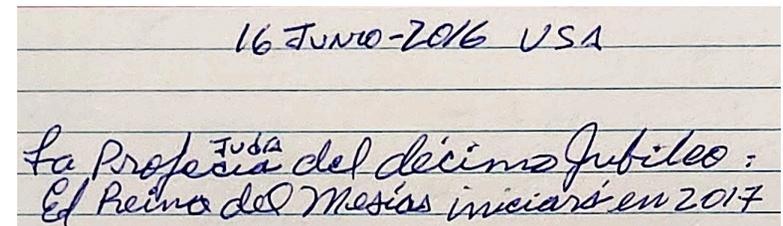 16 JUNIO-2016 USA
La Profecia JudA del décimo Jubileo:
El Reino del Mesías iniciará en 2017